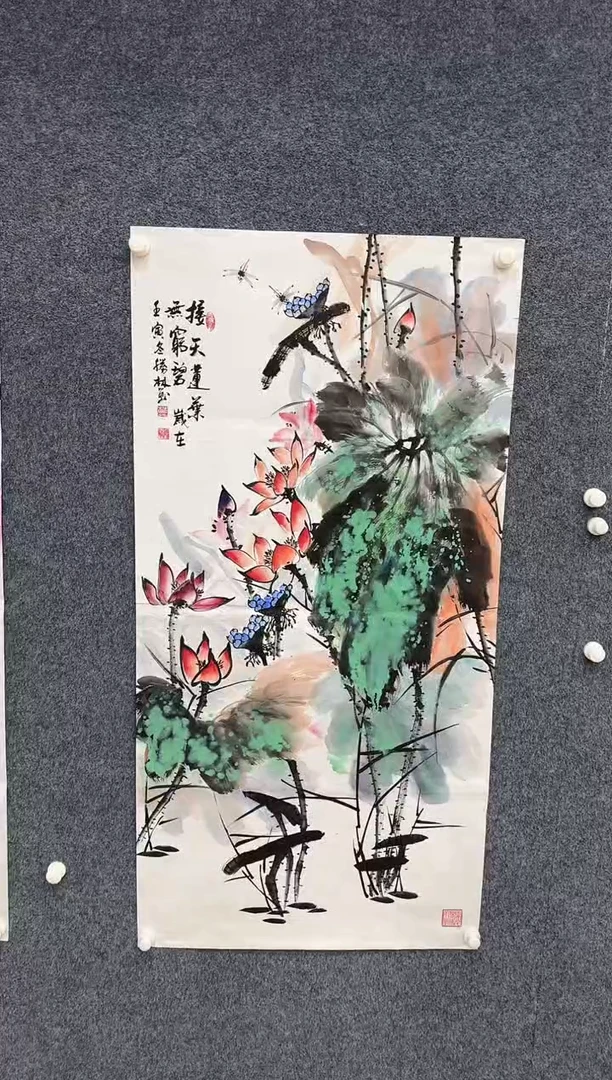 接天蓮葉
無窮碧 歲在
壬寅冬勝林